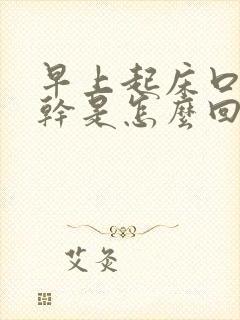 早上起床口
幹是怎麼回
艾灸